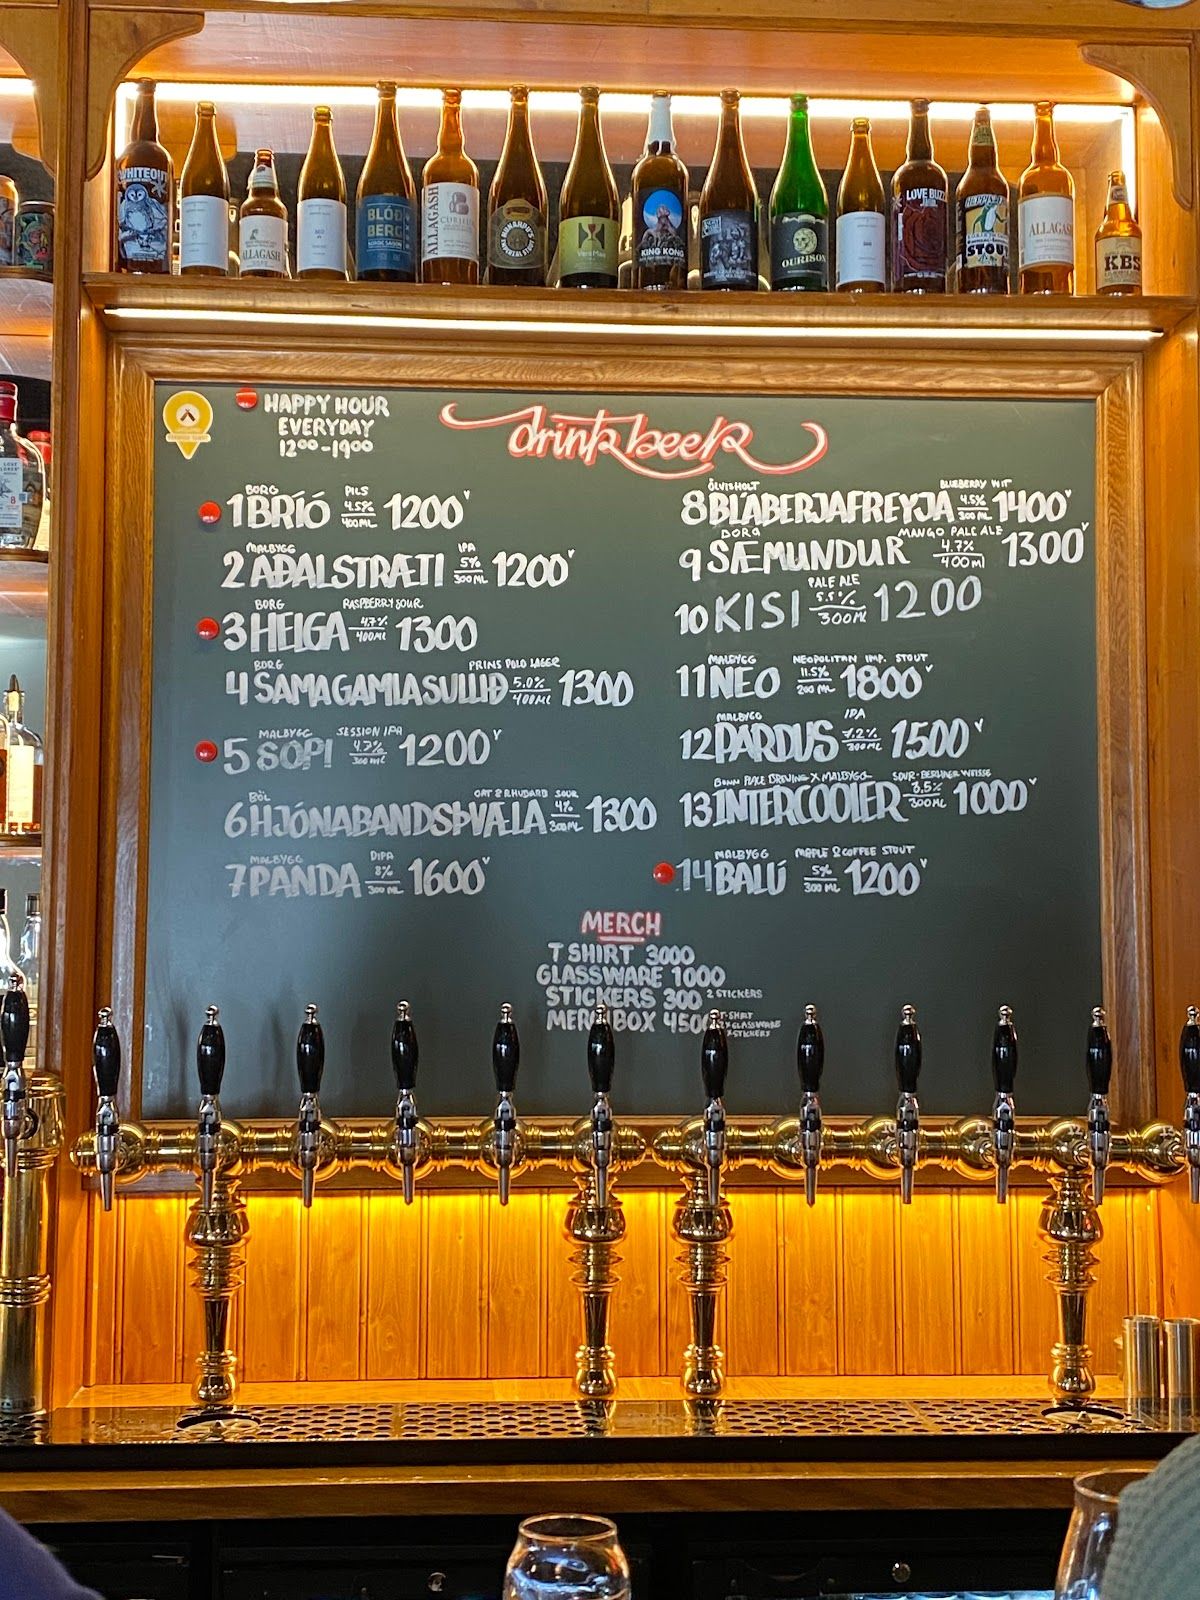 WHITEOUT
ALLAGASH
BLÓÐ
BERG
ALLAGASH
CURIEUX
IMPERIAL STOUT
KING KONG
OURISON
LOVE BUZZ
STOUT
ALLAGASH
KBS
HAPPY HOUR
EVERYDAY
12⁰⁰-19⁰⁰
drink beer
BORG PILS
1 BRÍÓ 4.5% 400ML 1200 V
MALBYGG IPA
2 AÐALSTRÆTI 5% 300ML 1200 V
BORG RASPBERRY SOUR
3 HELGA 4.7% 400ML 1300
BORG PRINS POLO LAGER
4 SAMA GAMLA SULLIÐ 5.0% 400ML 1300
MALBYGG SESSION IPA
5 SOPI 4.7% 300ML 1200 V
BÖL OAT & RHUBARB SOUR
6 HJÓNABANDSÞVÆLA 4% 300ML 1300
MALBYGG DIPA
7 PANDA 8% 300ML 1600 V
ÖLVISHOLT BLUEBERRY WIT
8 BLÁBERJAFREYJA 4.5% 300ML 1400 V
MANGO PALE ALE
9 SÆMUNDUR 4.7% 400ml 1300 V
PALE ALE
10 KISI 5.5% 300ML 1200
MALBYGG NEOPOLITAN IMP. STOUT
11 NEO 11.5% 200ML 1800 V
MALBYGG IPA
12 PARDUS 7.2% 300ML 1500 V
BONN PLACE BREWING X MALBYGG SOUR-BERLINER WEISSE
13 INTERCOOLER 3.5% 300ML 1000 V
MALBYGG MAPLE & COFFEE STOUT
14 BALÚ 5% 300ML 1200 V
MERCH
T SHIRT 3000
GLASSWARE 1000
STICKERS 300 2 STICKERS
MERCHBOX 4500 T-SHIRT
2X GLASSWARE
STICKERS